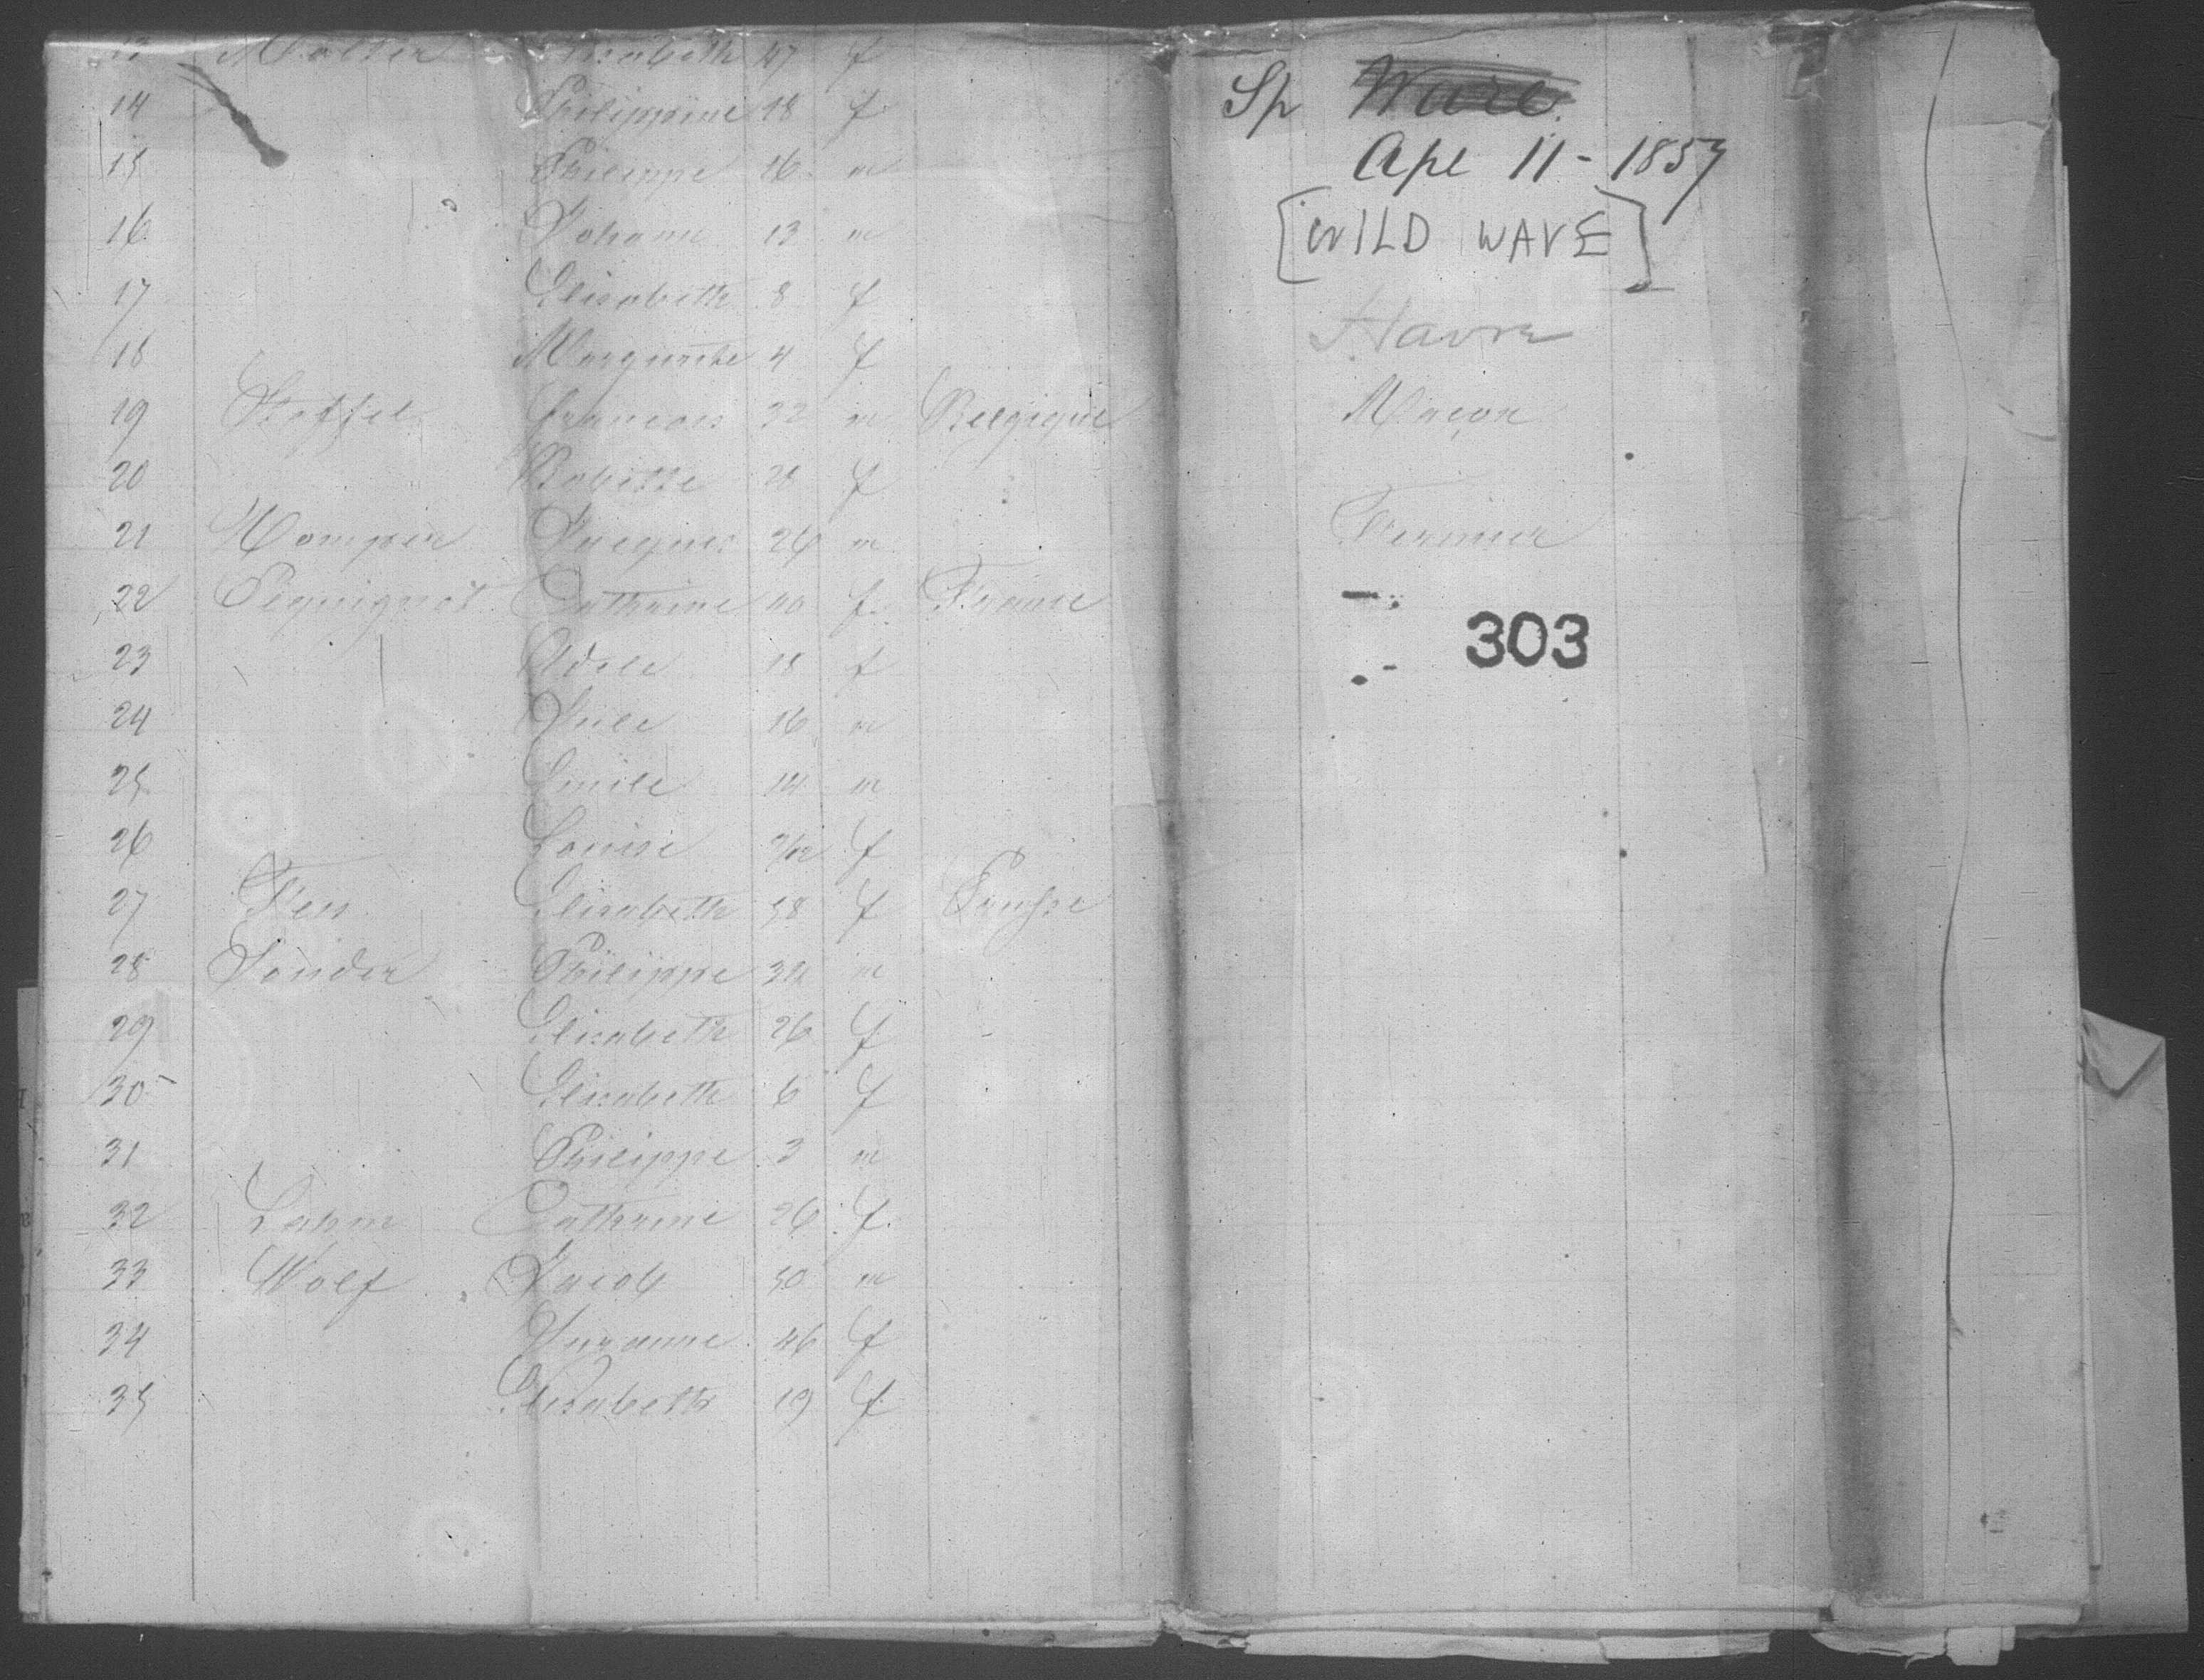 13 Molter Elisabeth 47 f
14 Philippine 18 f
15 Philippe 16 m
16 Johann 13 m
17 Elisabeth 8 f
18 Marguerite 4 f
19 Stoffel Francois 32 m Belgique Maçon
20 Babette 28 f
21 Jacques 26 m Fermier
22 Pequignot Catharine 40 f France
23 Adele 18 f
24 Jule 16 m
25 Emile 14 m
26 Louise f
27 Elisabeth 58 f Prusse
28 Sonder Philippe m
29 Elisabeth 26 f
30 Elisabeth 6 f
31 Philippe 3 m
32 Lahm Catharine 26 f
33 Wolf Jacob 50 m
34 Suzanne 46 f
35 Elisabeth 19 f
Sp
Apl 11 - 1857
[WILD WAVE]
Havre
303